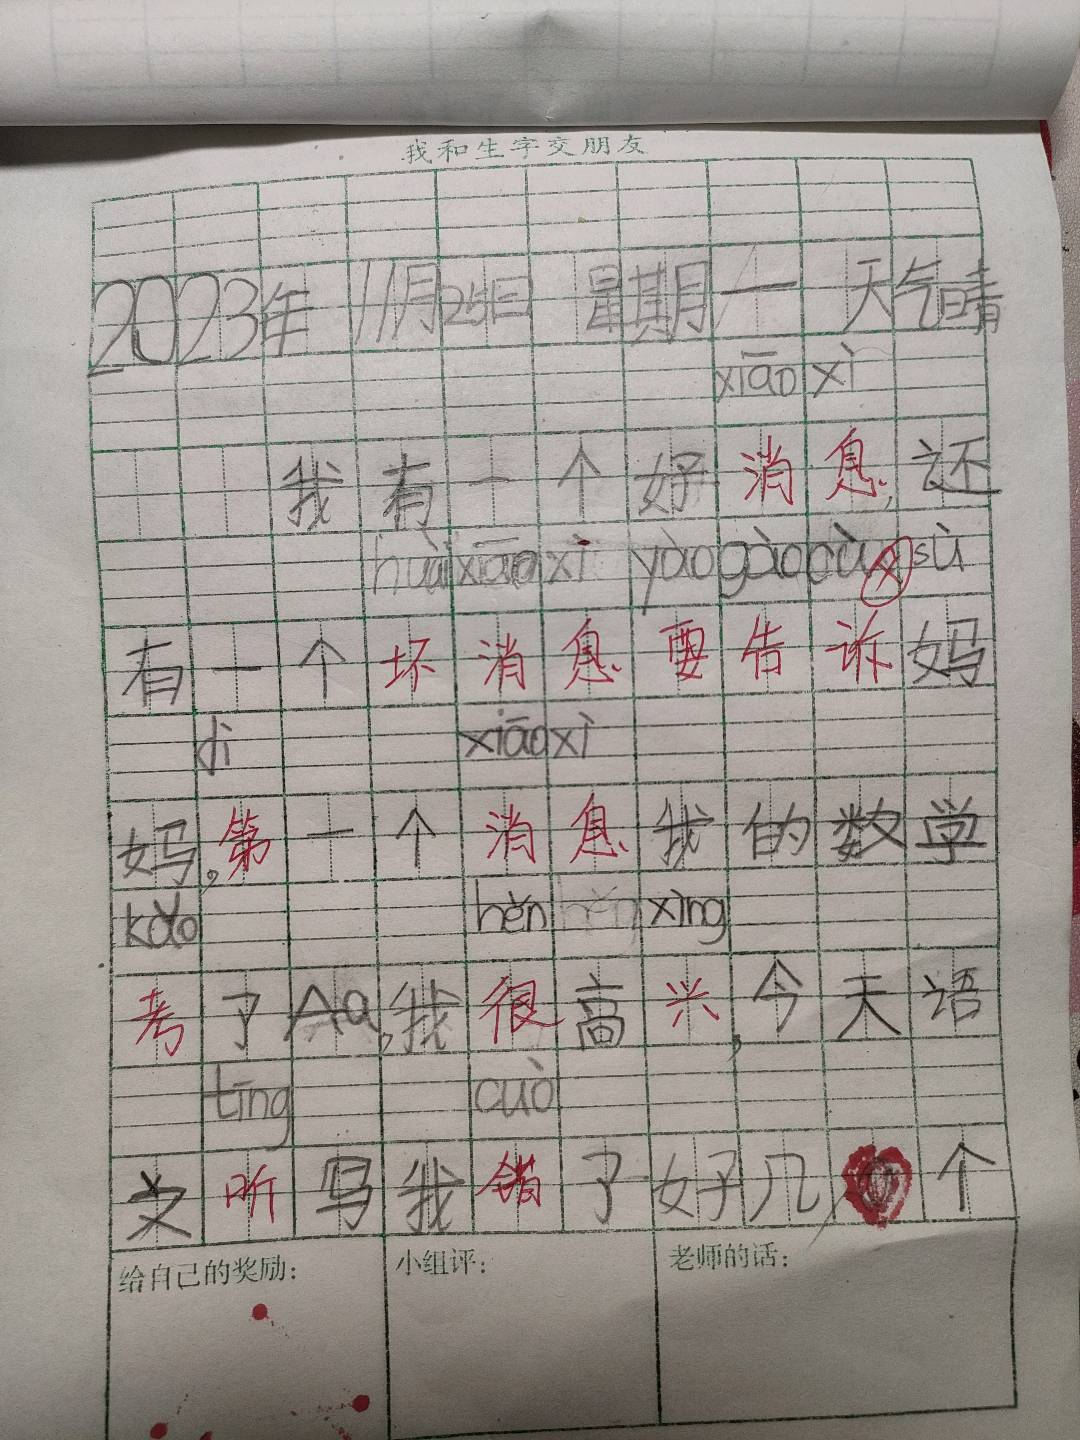 我和生字交朋友
2023年 11月25日 星期一 天气晴
xiāo xì
我有一个好消息,还
huài xiāo xì yào gào sù
有一个坏消息要告诉妈
dì xiāo xì
妈,第一个消息我的数学
kǎo hěn hěn xìng
考了Aa,我很高兴,今天语
tīng cuò
文听写我错了好几个
给自己的奖励: 小组评: 老师的话: